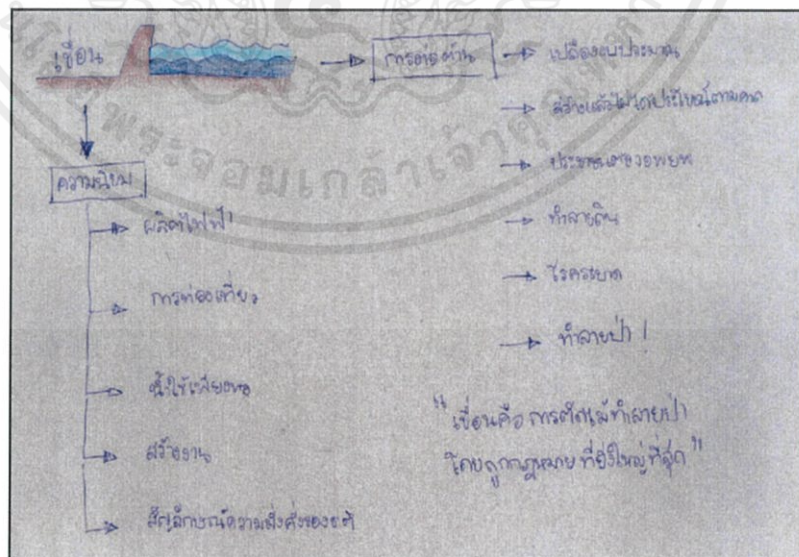 เขื่อน
การต่อต้าน
เปลืองงบประมาณ
สร้างแล้วไม่ได้ประโยชน์ตามคาด
ประชาชนต้องอพยพ
ทำลายดิน
โรคระบาด
ทำลายป่า !
ความนิยม
ผลิตไฟฟ้า
การท่องเที่ยว
น้ำใช้เพียงพอ
สร้างงาน
สัญลักษณ์ความมั่งคั่งของชาติ
"เขื่อนคือ การตัดไม้ทำลายป่า
โดยถูกกฎหมาย ที่ยิ่งใหญ่ที่สุด"
พระจอมเกล้าเจ้าคุณทหาร